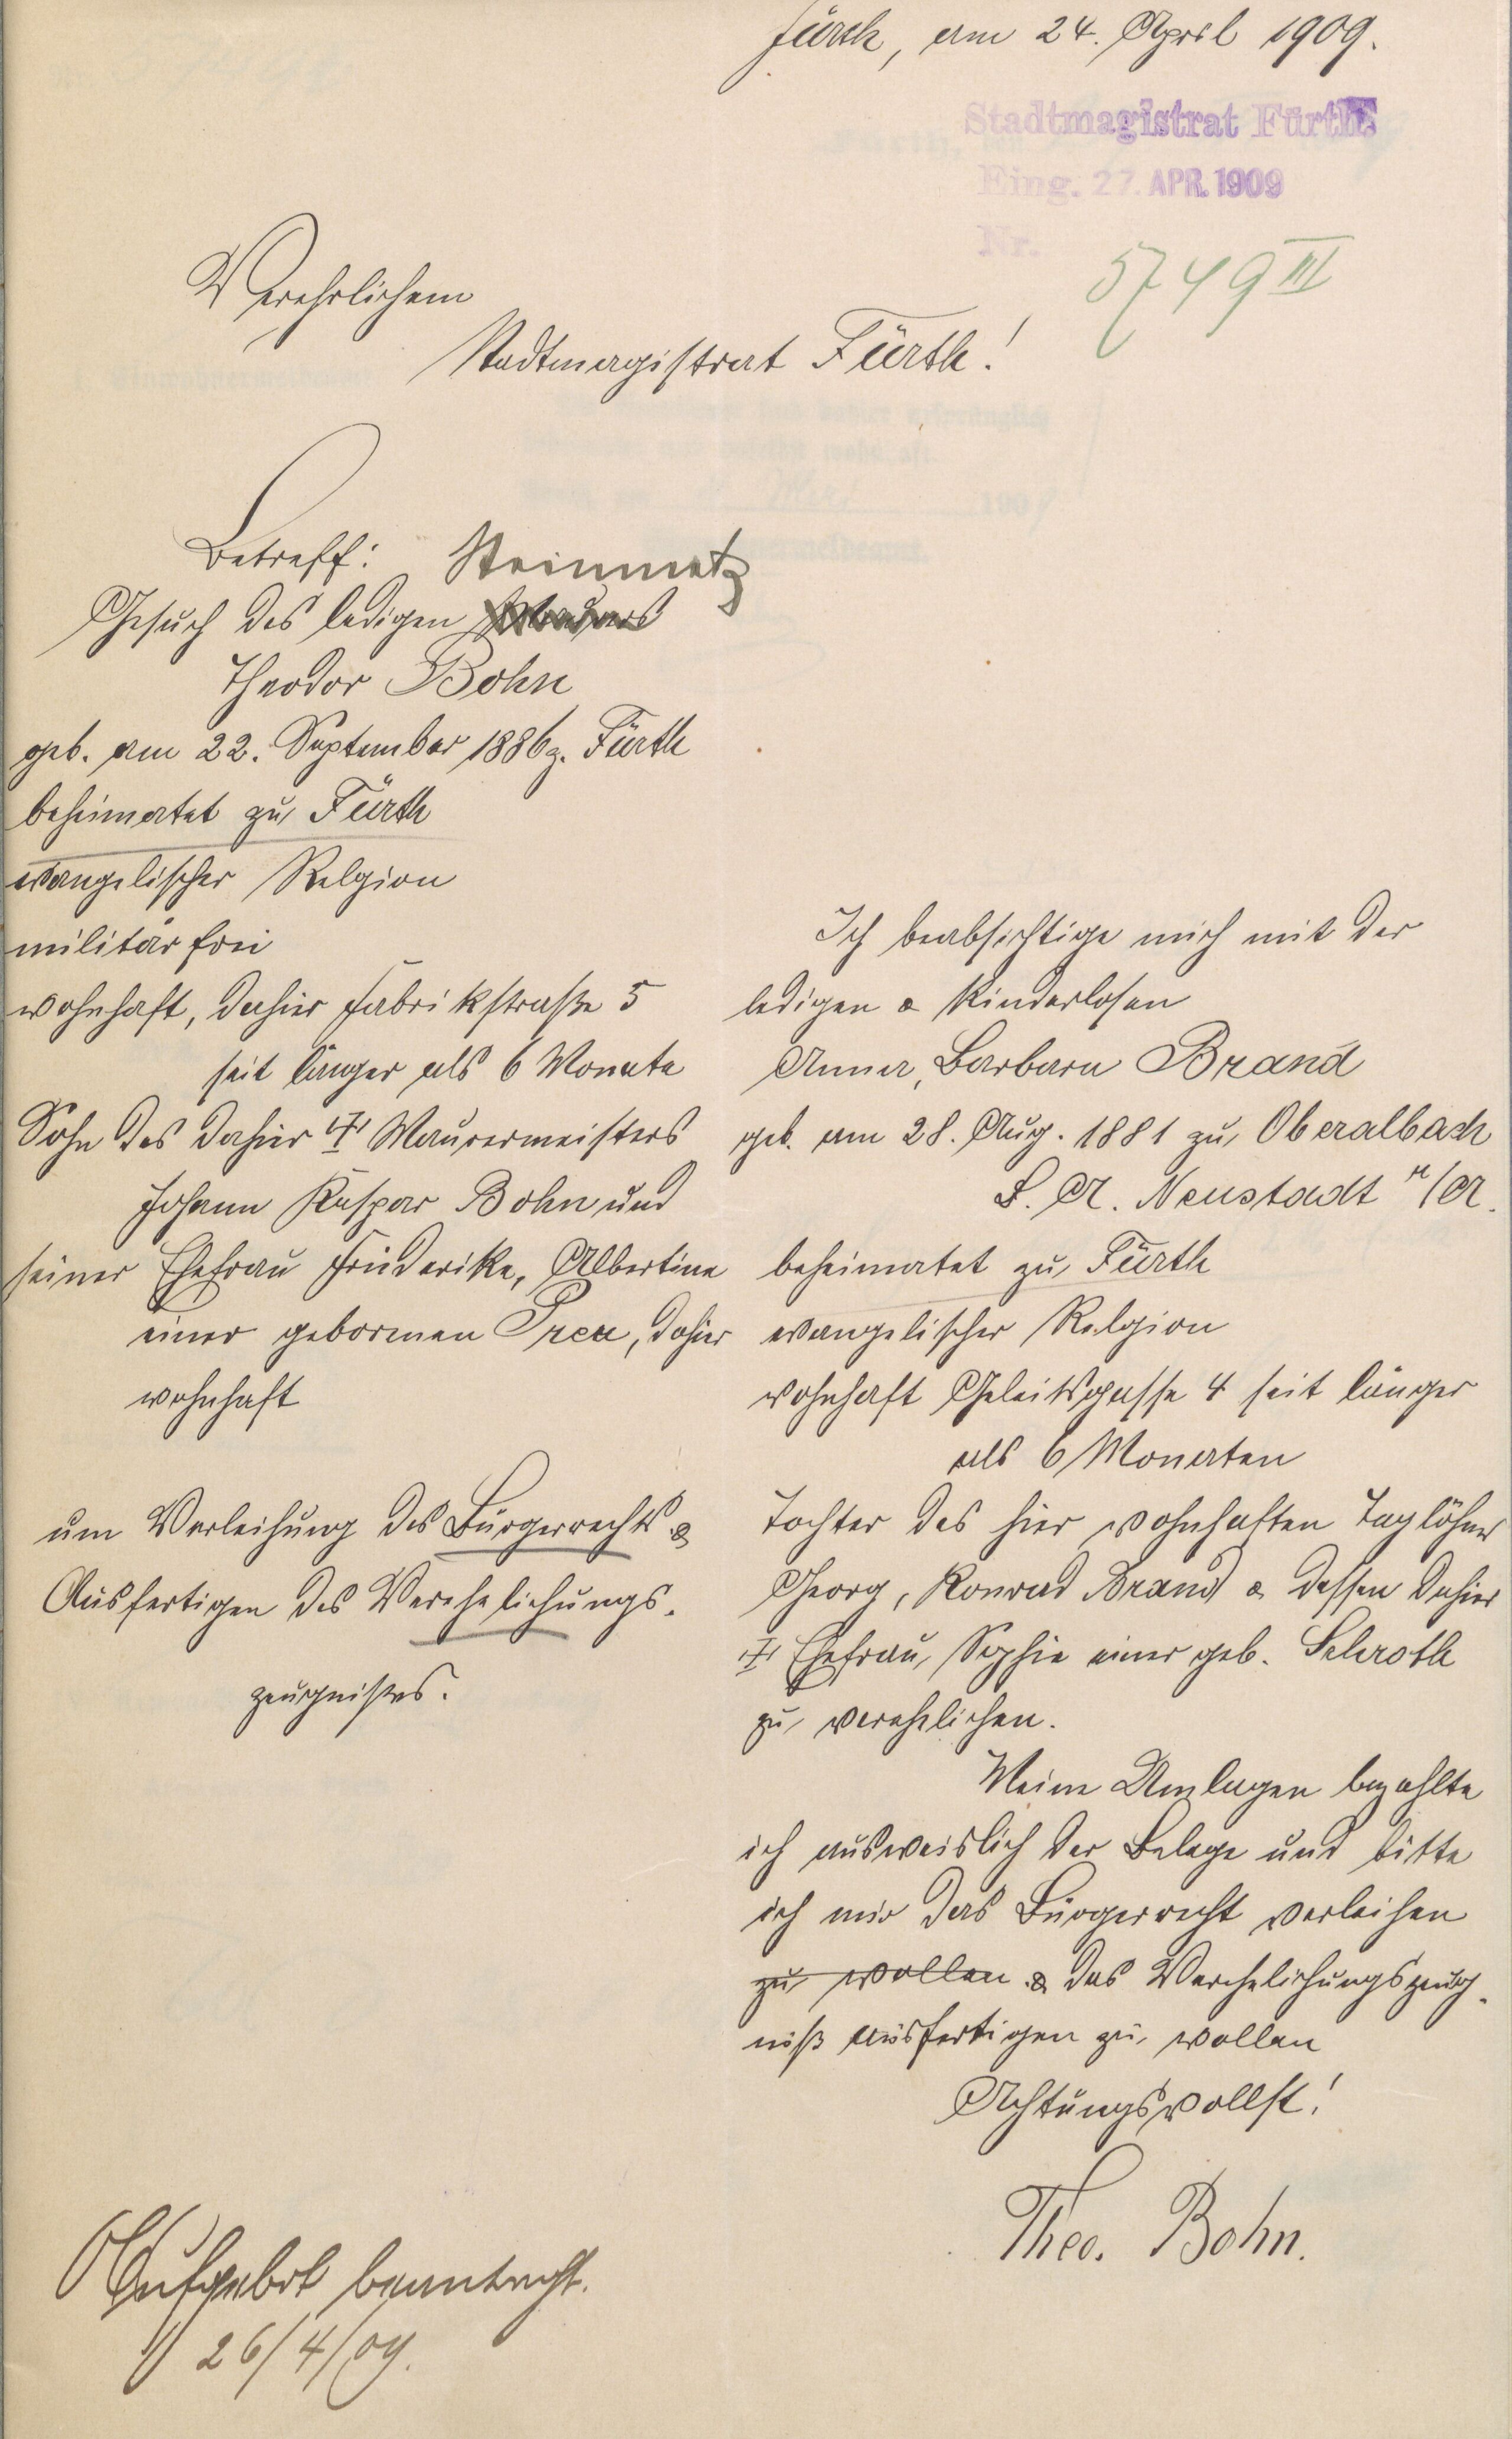 Fürth, am 24. April 1909.
Stadtmagistrat Fürth.
Eing. 27. APR. 1909
Nr.
5749 III
Verehrlichem
Stadtmagistrat Fürth!
Betreff: Steinmetz
Gesuch des ledigen
Theodor Bohn
geb. am 22. September 1886 z. Fürth
beheimatet zu Fürth
evangelischer Relgion
militär frei
wohnhaft, dahier Fabrikstraße 5
seit länger als 6 Monate
Sohn des dahier † Maurermeisters
Johann Kaspar Bohn und
seiner Ehefrau Friederike, Albertine
einer gebornen, dahier
wohnhaft
um Verleihung des Bürgerrechts &
Ausfertigen des Verehelichungs-
zeugnißes.
Ich beabsichtige mich mit der
ledigen & kinderlosen
Anna, Barbara Brand
geb. am 28. Aug. 1881 zu Oberalbach
B. A. Neustadt a/A.
beheimatet zu Fürth
evangelischer Relgion
wohnhaft Geleitsgasse 4 seit länger
als 6 Monaten
Tochter des hier wohnhaften Taglöhner
Georg, Konrad Brand & dessen dahier
† Ehefrau, Sophie einer geb. Schroth
zu verehelichen.
Meine Umlagen bezahlte
ich ausweislich der Belege und bitte
ich mir das Bürgerrecht verleihen
zu wollen & das Verehelichungszeug-
niß ausfertigen zu wollen
Achtungsvollst!
Theo. Bohn.
Aufgebot beantragt.
26/4/09.